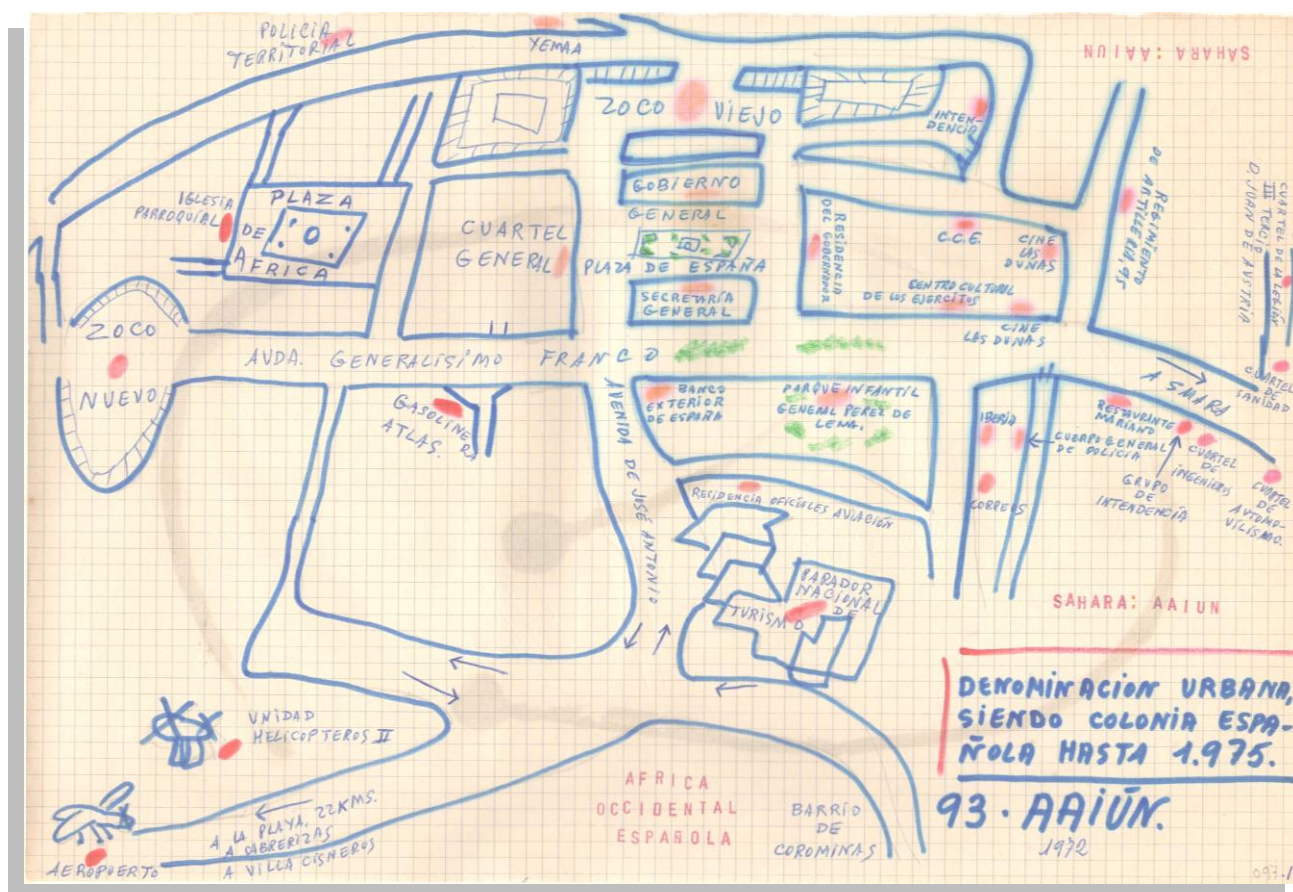 POLICIA
TERRITORIAL
YEMAA
SAHARA: AAIUN
ZOCO
VIEJO
INTEN-
DENCIA
GOBIERNO
GENERAL
PLAZA DE ESPAÑA
SECRETARÍA
GENERAL
IGLESIA
PARROQUIAL
PLAZA
DE
AFRICA
CUARTEL
GENERAL
RESIDENCIA
DEL GOBERNADOR
C.C.E.
CINE
LAS
DUNAS
CENTRO CULTURAL
DE LOS EJERCITOS
CINE
LAS DUNAS
REGIMIENTO
DE ARTILLERIA, 95
CUARTEL DE LA LEGIÓN
III TERCIO
D. JUAN DE AUSTRIA
ZOCO
NUEVO
AVDA. GENERALÍSIMO FRANCO
A SMARA
CUARTEL
DE
SANIDAD
GASOLINERA
ATLAS.
AVENIDA DE JOSÉ ANTONIO
BANCO
EXTERIOR
DE ESPAÑA
PARQUE INFANTIL
GENERAL PEREZ DE
LEMA.
IBERIA
RESTAURANTE
MARIANO
CUERPO GENERAL
DE POLICIA
GRUPO
DE
INTENDENCIA
CUARTEL
DE
INGENIEROS
CUARTEL
DE
AUTOMO-
VILISMO.
CORREOS
RESIDENCIA OFICIALES AVIACIÓN
PARADOR
NACIONAL
DE
TURISMO
SAHARA: AAIUN
DENOMINACION URBANA,
SIENDO COLONIA ESPA-
ÑOLA HASTA 1.975.
93. AAIÚN.
1972
UNIDAD
HELICOPTEROS II
AEROPUERTO
A LA PLAYA, 22KMS.
A CABRERIZAS
A VILLA CISNEROS
AFRICA
OCCIDENTAL
ESPAÑOLA
BARRIO
DE
COROMINAS